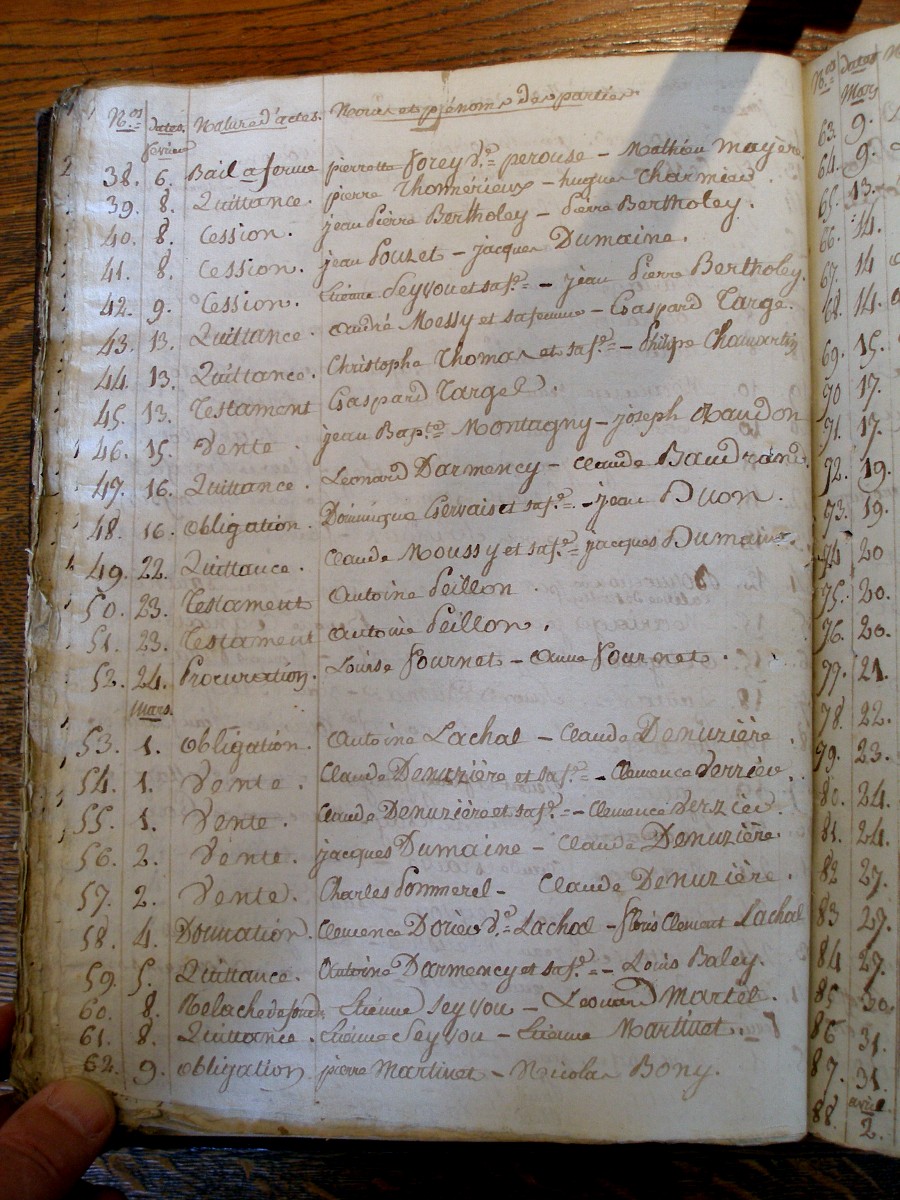 Nos dates Nature d'actes. Noms et prénoms des parties
fevrier
38. 6. Bail a ferme pierrette forey Ve. perouse - Mathieu mayère
39. 8. Quittance. pierre Thomérieux - hugues Charmier
40. 8. Cession. jean Pierre Bertholey - Pierre Bertholey.
41. 8. Cession. jean Pouzet - jacques Dumaine.
42. 9. Cession. Etienne Seyvou et sa fe. - jean Pierre Bertholey.
43. 13. Quittance. André Messy et sa femme - Gaspard Targe.
44. 13. Quittance. Christophe Thomas et sa fe. - Philipe
45. 13. Testament Gaspard Targe.
46. 15. Vente. jean Bapte. Montagny - joseph
47. 16. Quittance. Leonard Darmency - Claude Baudrand.
48. 16. Obligation. Dominique Gervais et sa fe. - jean Buon.
49. 22. Quittance. Claude Moussy et sa fe. jacques Dumaine.
50. 23. Testament Antoine Peillon.
51. 23. Testament Antoine Peillon.
52. 24. Procuration. Louise fournet - Anne fournet.
Mars.
53. 1. Obligation. Antoine Lachal - Claude Denuzière
54. 1. Vente. Claude Denuzière et sa fe. - Clemence Verzier.
55. 1. Vente. Claude Denuzière et sa fe. - Clemence Verzier.
56. 2. Vente. jacques Dumaine - Claude Denuzière.
57. 2. Vente. Charles Pommerel - Claude Denuzière.
58. 4. Donnation. Clemence Ve. Lachal - Clement Lachal
59. 5. Quittance. Antoine Darmency et sa fe. - Louis Baley.
60. 8. Relache de fond. Etienne Seyvou - Leonard Martel.
61. 8. Quittance. Etienne Seyvou - Etienne Martinet.
62. 9. Obligation. pierre Martinet - Nicolas Bony.
Nos dates
Mars
63. 9.
64. 9.
65. 13.
66. 14.
67. 14
68. 14.
69. 15.
70 17.
71. 17.
72. 19.
73. 19.
74 20
75. 20.
76. 20.
77. 21.
78. 22.
79. 23.
80. 24.
81. 24.
82 27.
83 27.
84 27.
85 30.
86 31.
87. 31.
avril
88. 2.